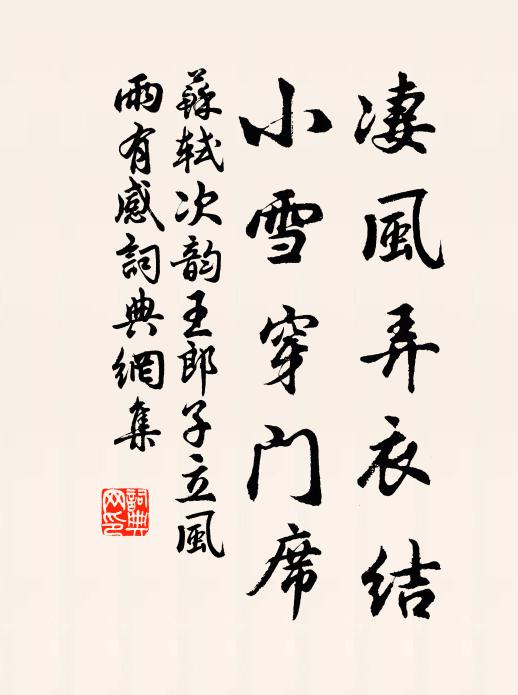 凄風弄衣结
小雪穿門席
蘇軾次韵王郎子立風
雨有感詞典網集
詞典
网印